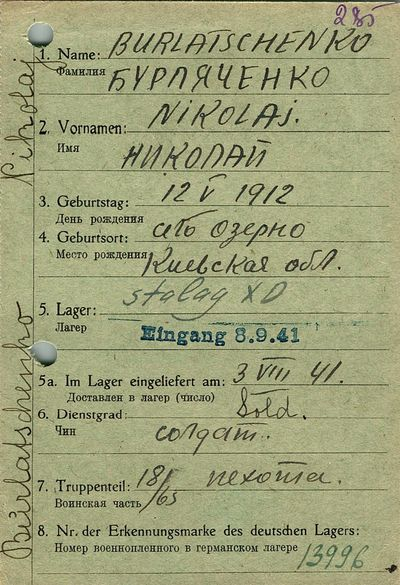 285
1. Name: BURLATSCHENKO
Фамилия БУРЛЯЧЕНКО
2. Vornamen: NIKOLAJ.
Имя НИКОЛАЙ
3. Geburtstag: 12 V 1912
День рождения
4. Geburtsort: Озерно
Место рождения Киевская обл.
5. Lager: Stalag XD
Лагерь
Eingang 8.9.41
5a. Im Lager eingeliefert am: 3 VIII 41.
Доставлен в лагерь (число)
6. Dienstgrad: Sold.
Чин солдат.
7. Truppenteil: пехота.
Воинская часть
8. Nr. der Erkennungsmarke des deutschen Lagers:
Номер военнопленного в германском лагере 13996
Burlatschenko Nikolaj